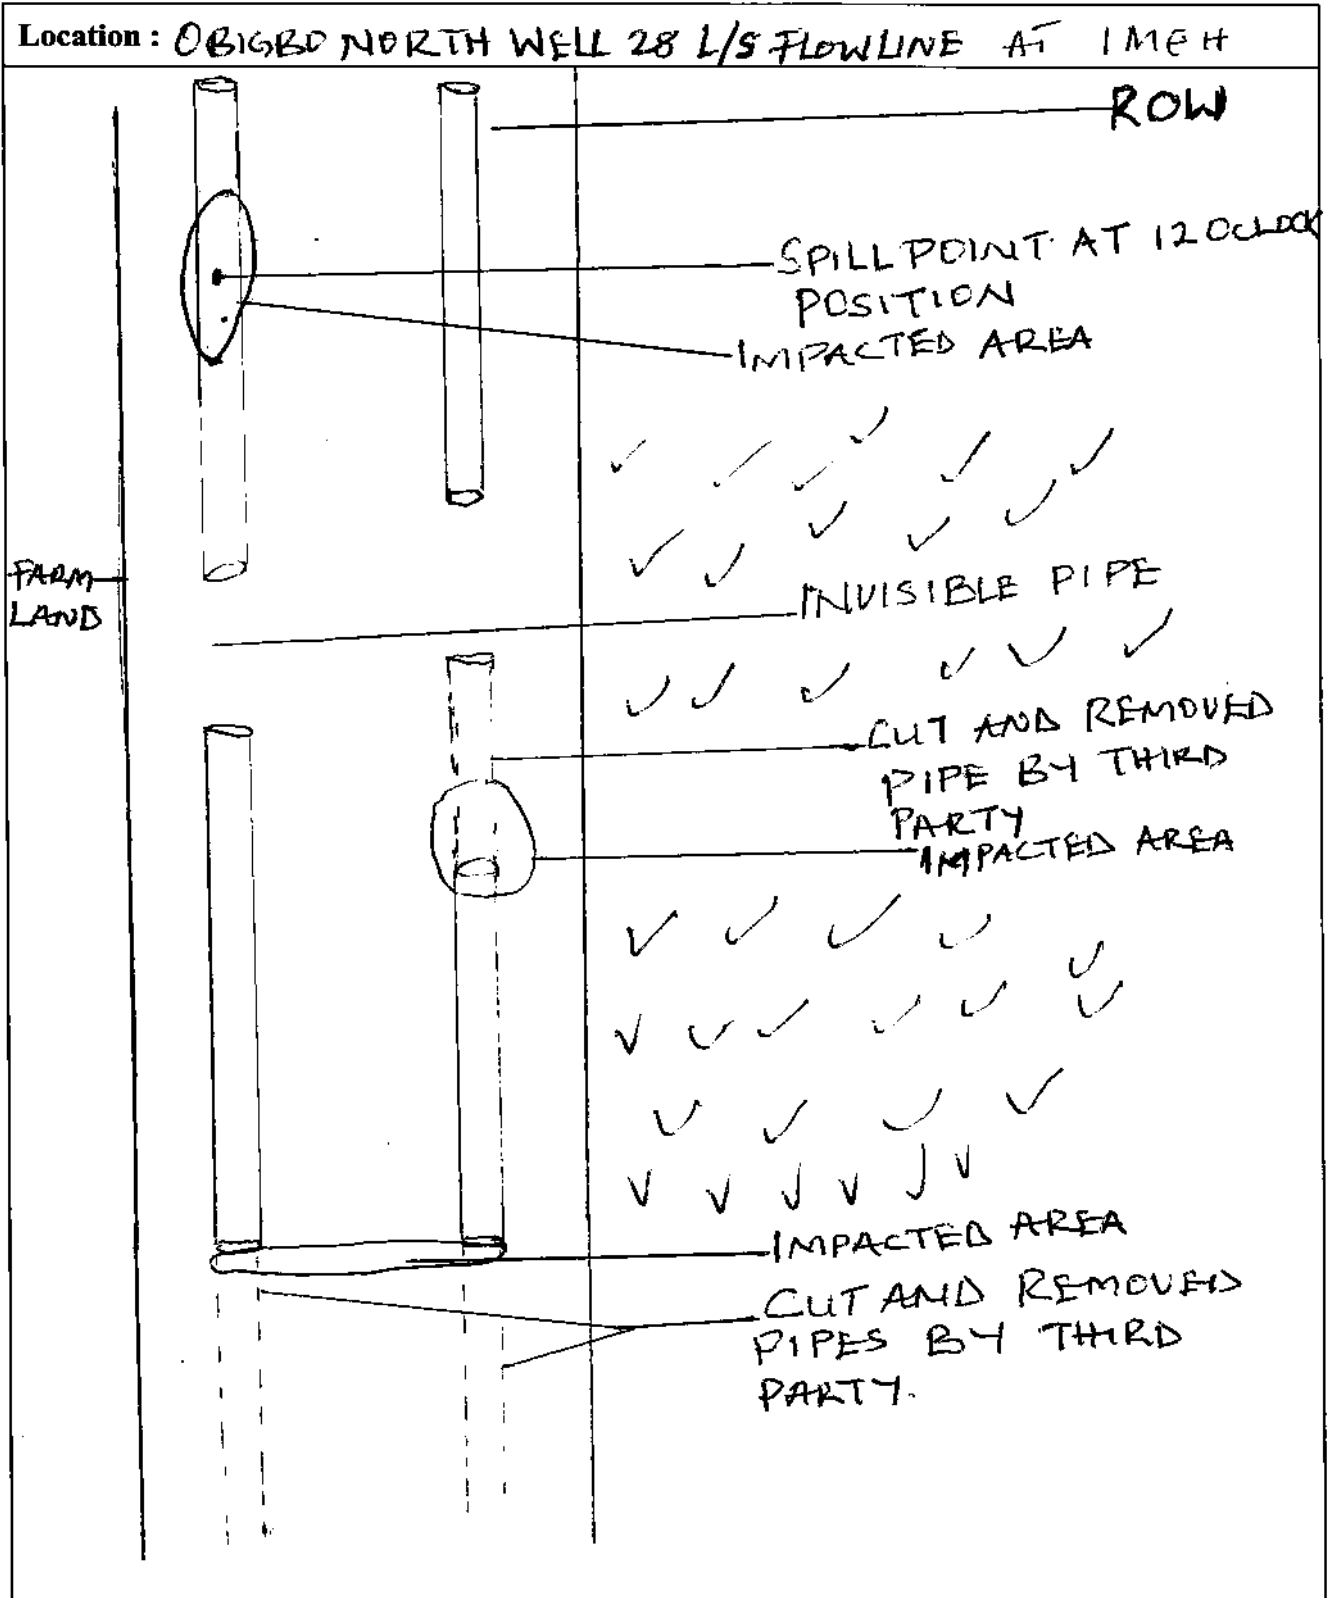 Location : OBIGBO NORTH WELL 28 L/S FLOWLINE AT IMEH
ROW
SPILL POINT AT 12 OCLOCK
POSITION
IMPACTED AREA
FARM
LAND
INVISIBLE PIPE
CUT AND REMOVED
PIPE BY THIRD
PARTY
IMPACTED AREA
IMPACTED AREA
CUT AND REMOVED
PIPES BY THIRD
PARTY.